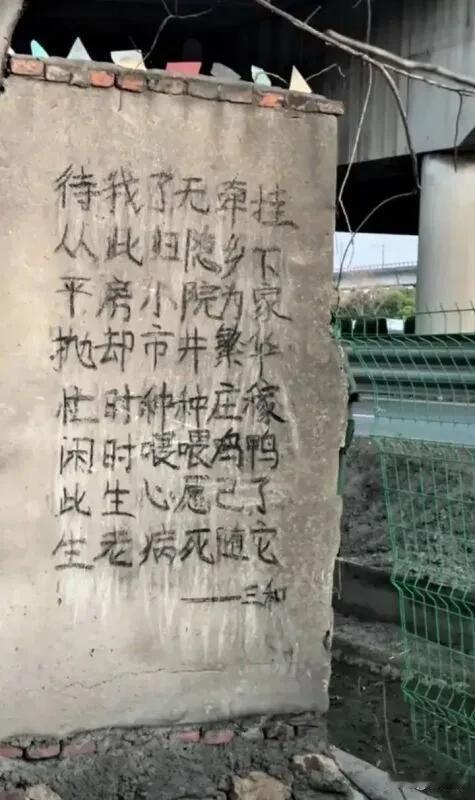 待我了无牵挂
从此归隐乡下
平房小院为家
抛却市井繁华
忙时种种庄稼
闲时喂喂鸡鸭
此生心愿已了
生老病死随它
——三和